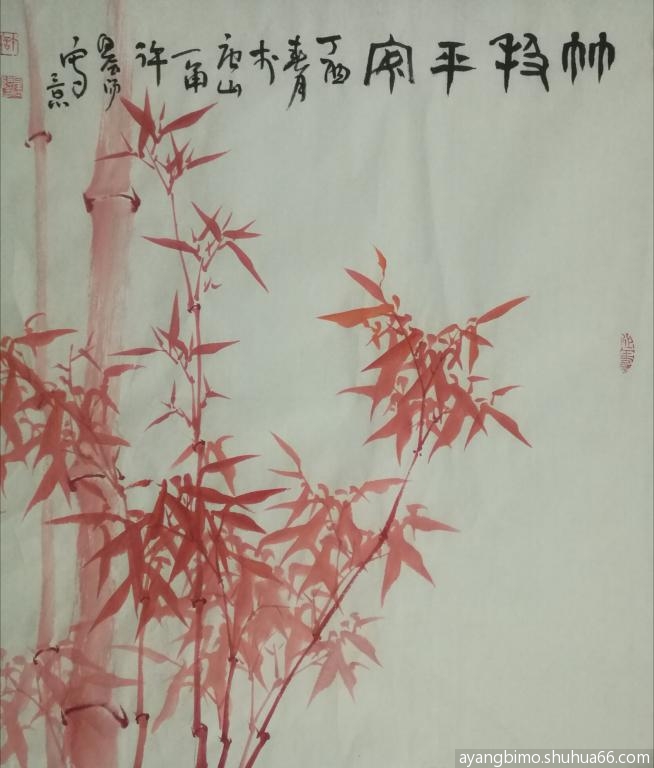 竹报平安
丁酉
春月
于
唐山
一角
许
写意
ayangbimo.shuhua66.com